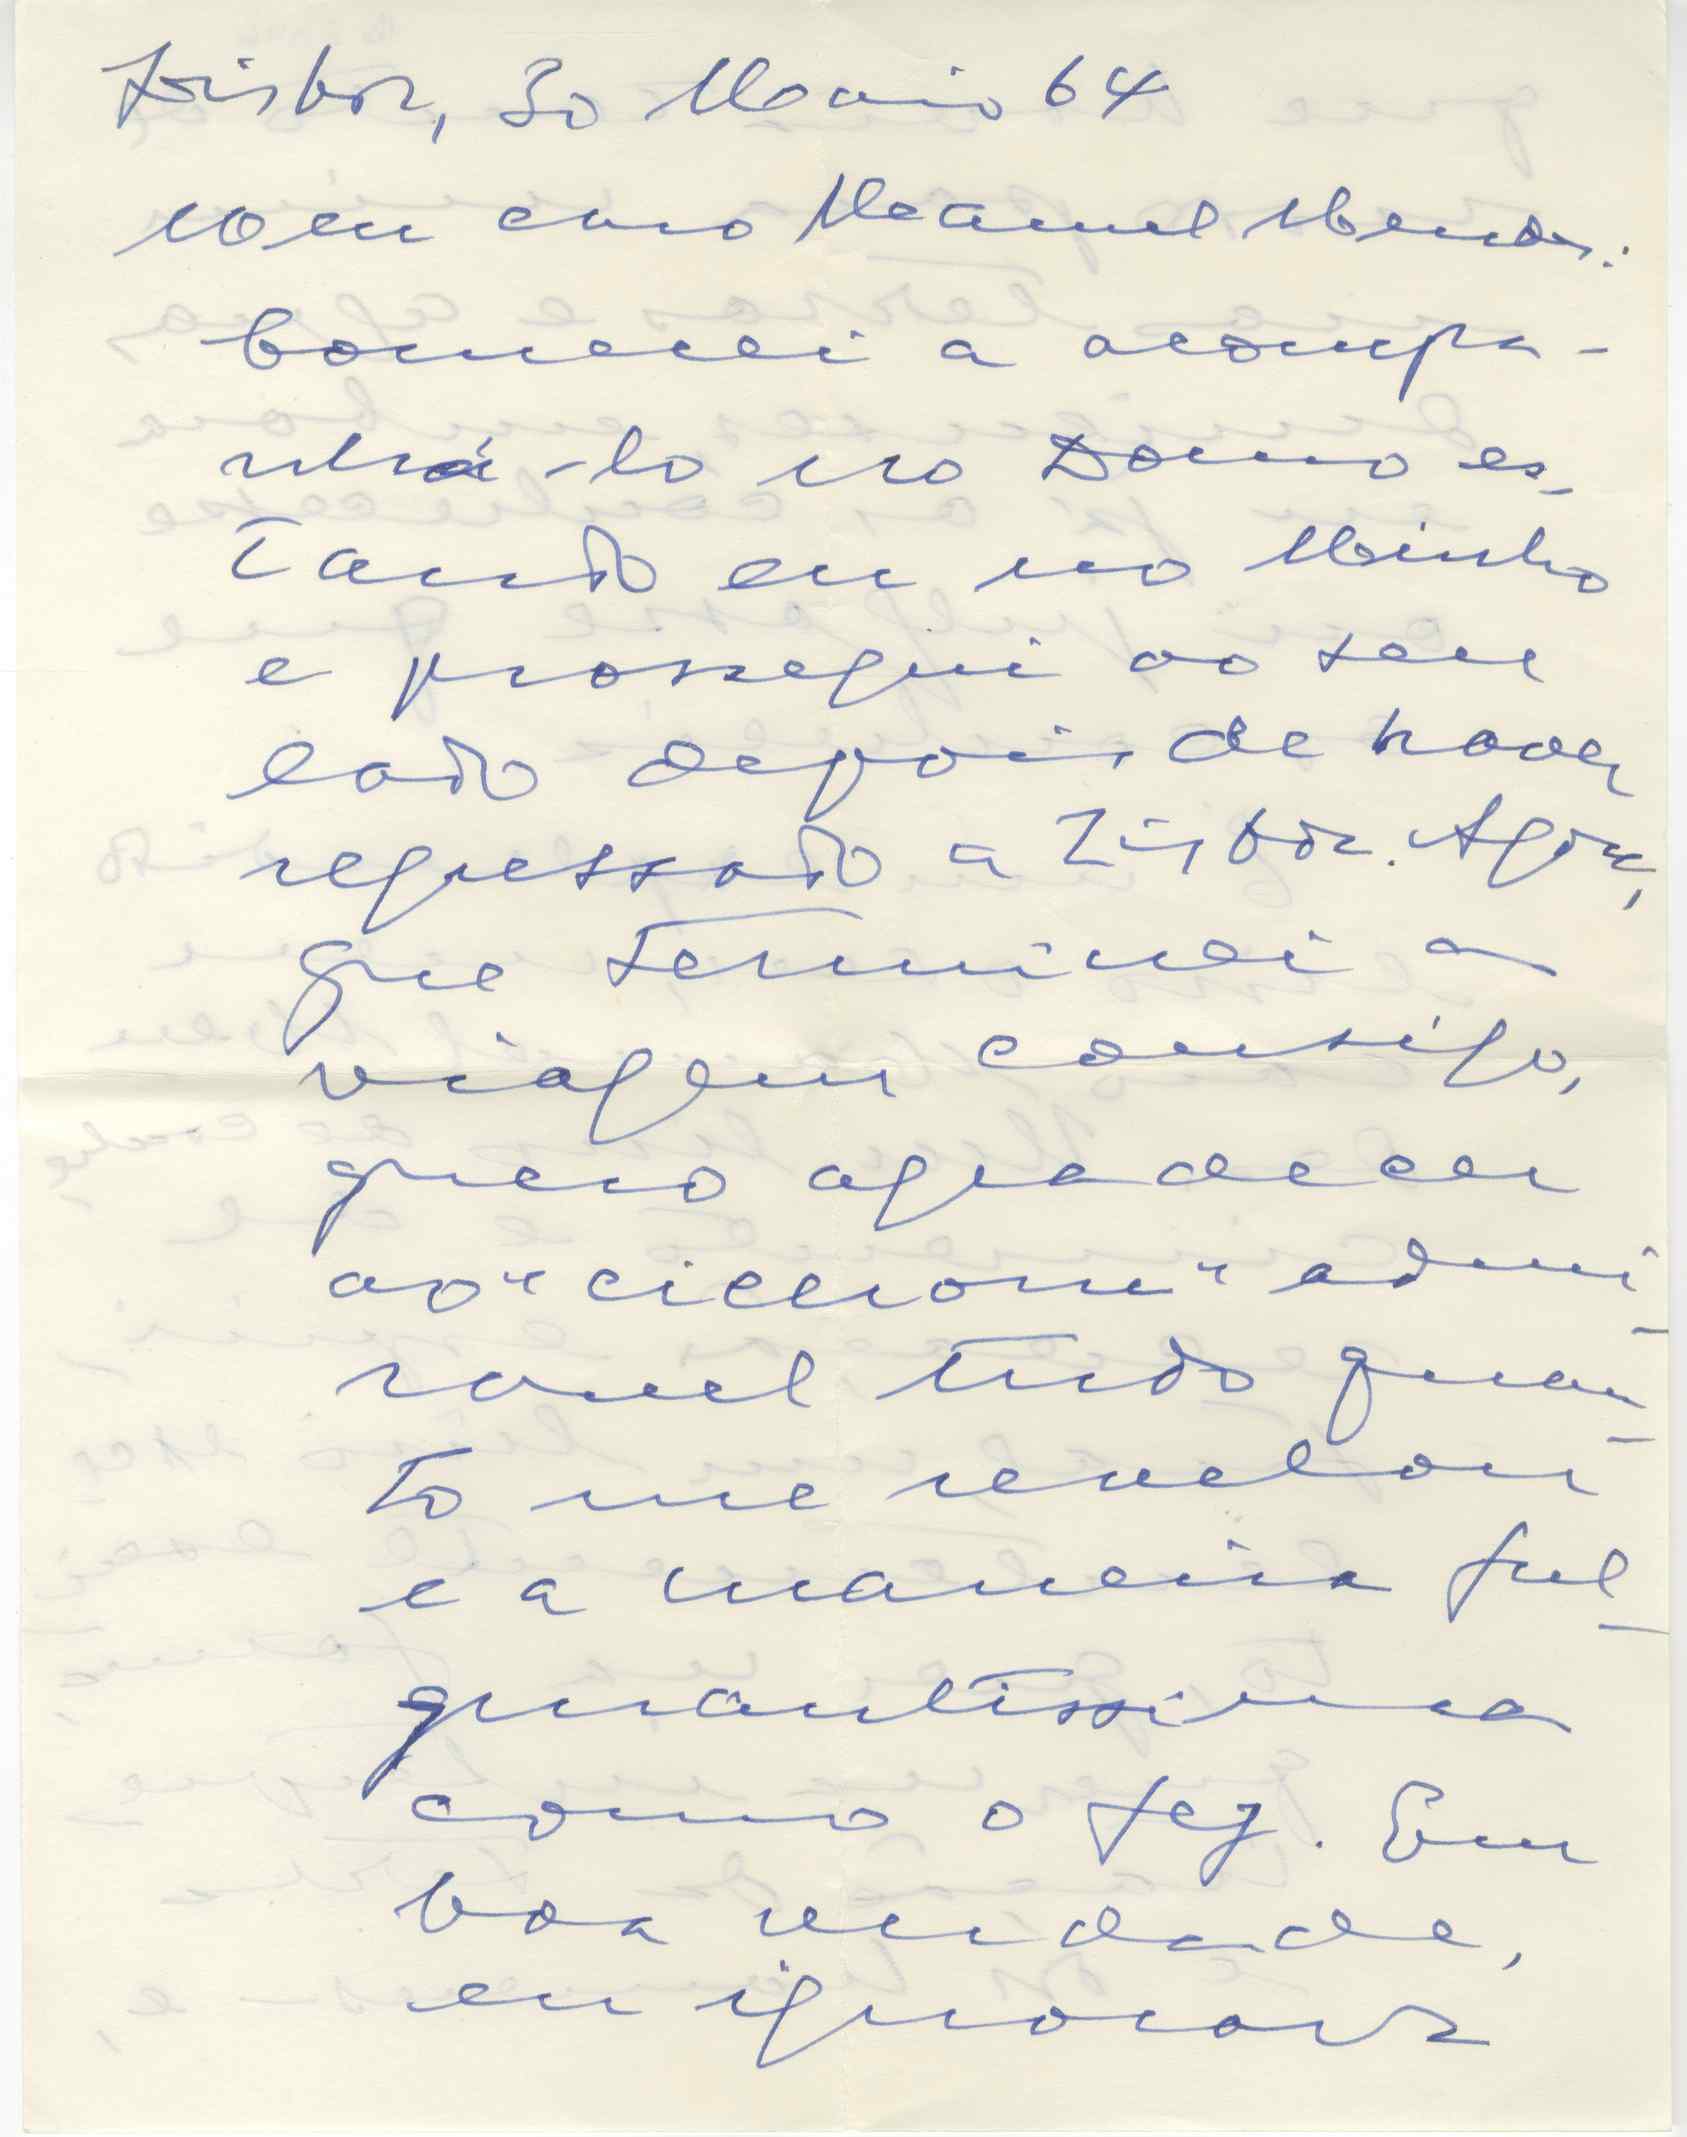 Lisboa, 30 Maio 64
Meu caro Manuel Mendes:
Comecei a acompa-
nhá-lo no Douro es-
tando eu no Minho
e prossegui ao seu
lado depois de haver
regressado a Lisboa. Agora,
que terminei a
viagem consigo,
quero agradecer
ao "cicerone" admi-
rável tudo quan-
to me revelou
e a maneira ful-
gurantíssima
como o fez. Em
boa verdade,
eu ignorava